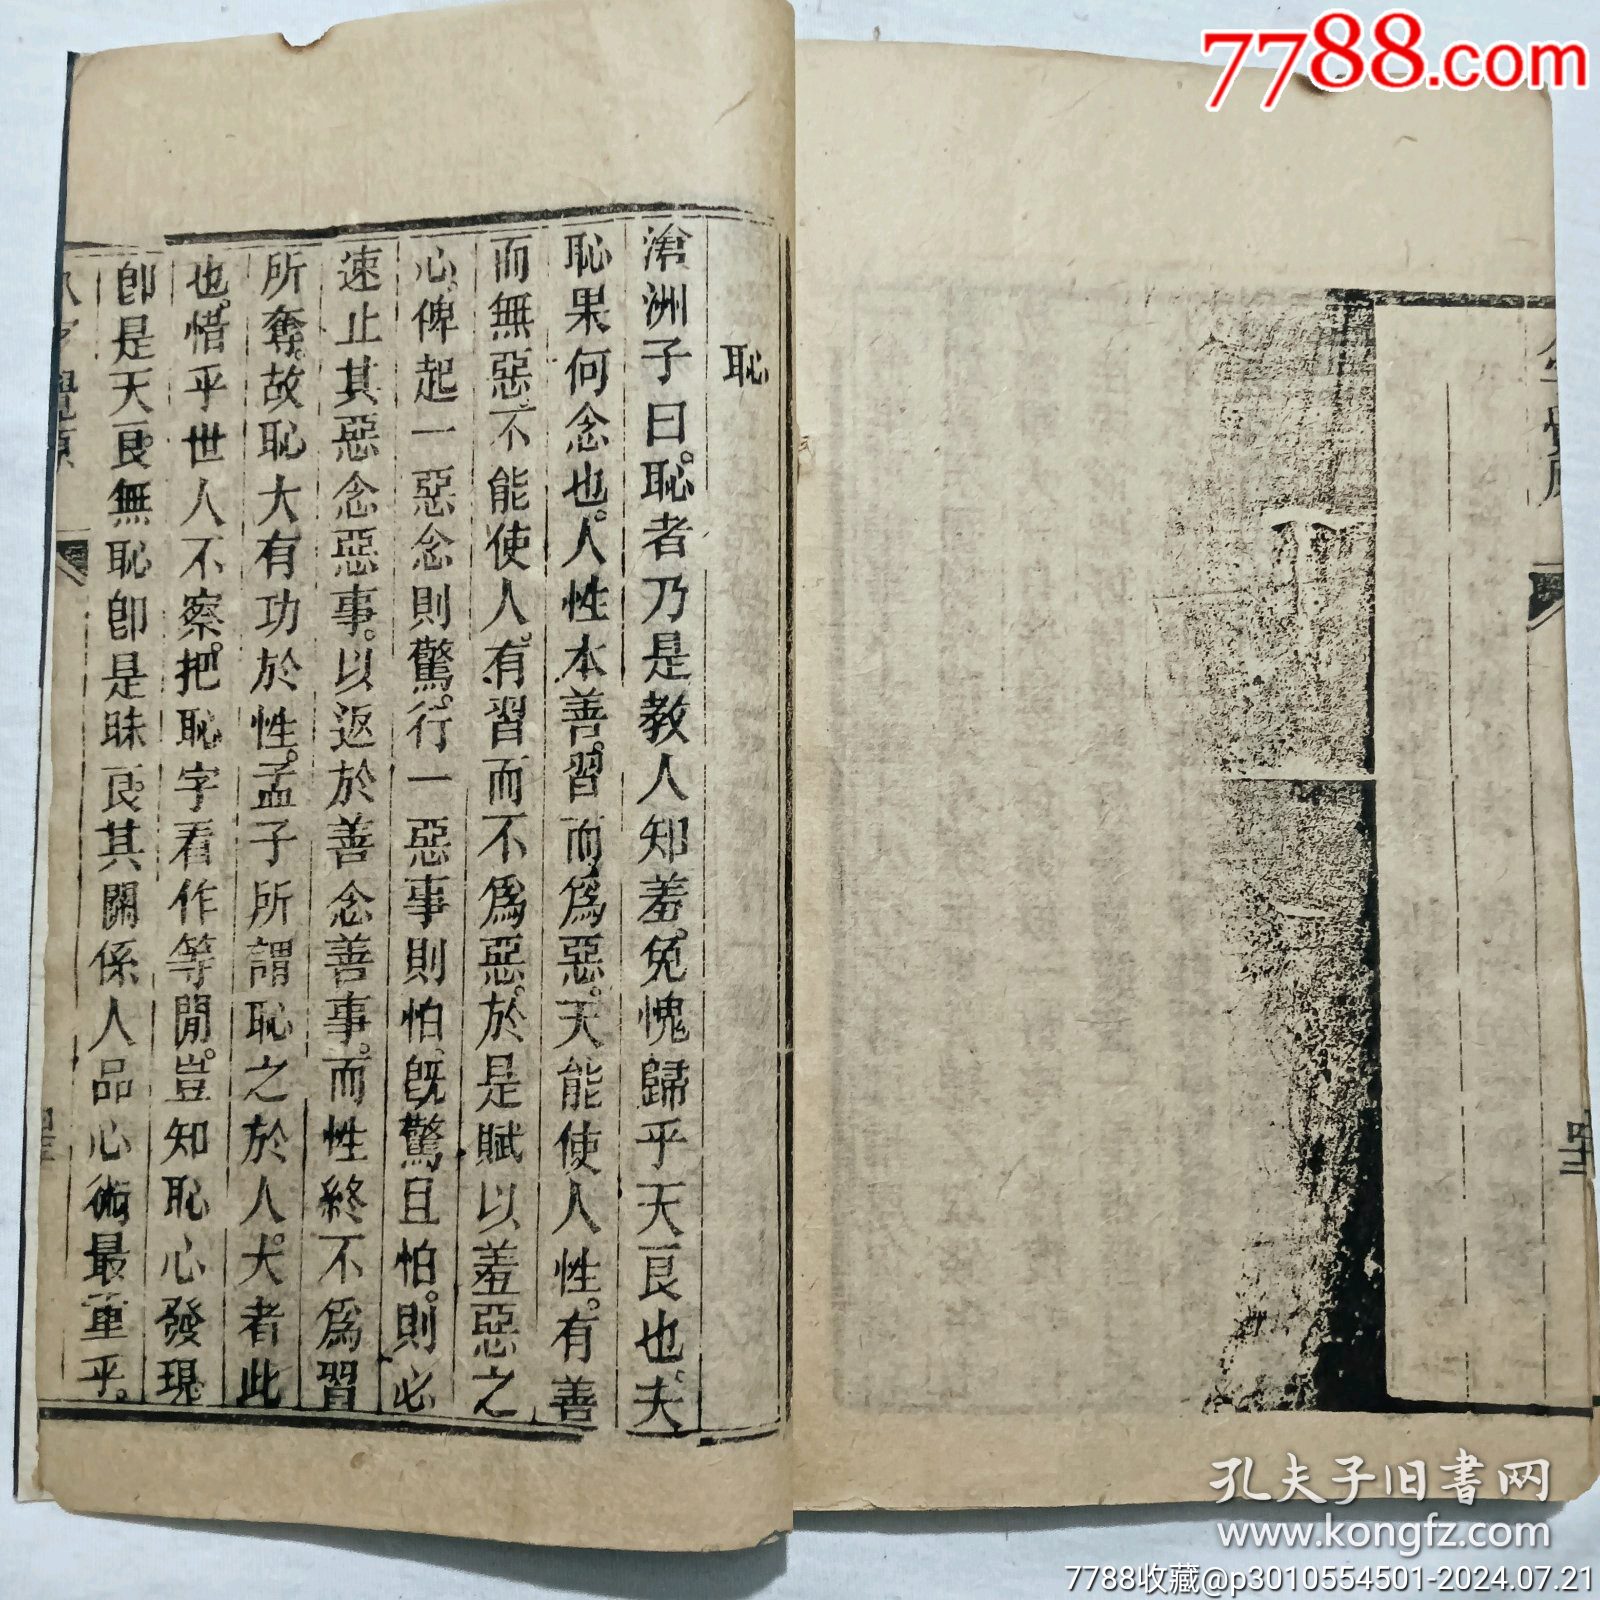 7788.com
恥
滄洲子曰。恥者乃是教人知羞。免愧歸乎天良也。夫
恥果何念也。人性本善。習而為惡。天能使人性。有善
而無惡。不能使人。有習而不為惡。於是賦以羞惡之
心。俾起一惡念則驚。行一惡事則怕。既驚且怕。則必
速止其惡念惡事。以返於善念善事。而性終不為習
所奪。故恥大有功於性。孟子所謂恥之於人。大者此
也。惜乎世人不察。把恥字看作等閒。豈知恥心發現
卽是天良無恥卽是昧良其關係人品心術最重乎。
孔夫子旧书网
www.kongfz.com
7788收藏@p3010554501-2024.07.21